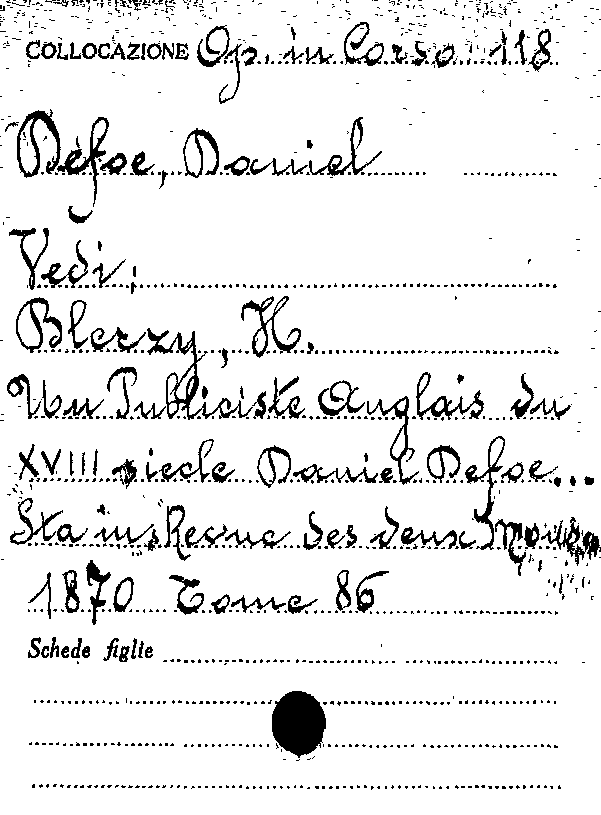 COLLOCAZIONE Op. in Corso 118
Defoe, Daniel
Vedi:
Blerzy, H.
Un Publiciste Anglais du
XVIII siecle Daniel Defoe...
Sta in: Revue des deux Mondes
1870 Tome 86
Schede figlie